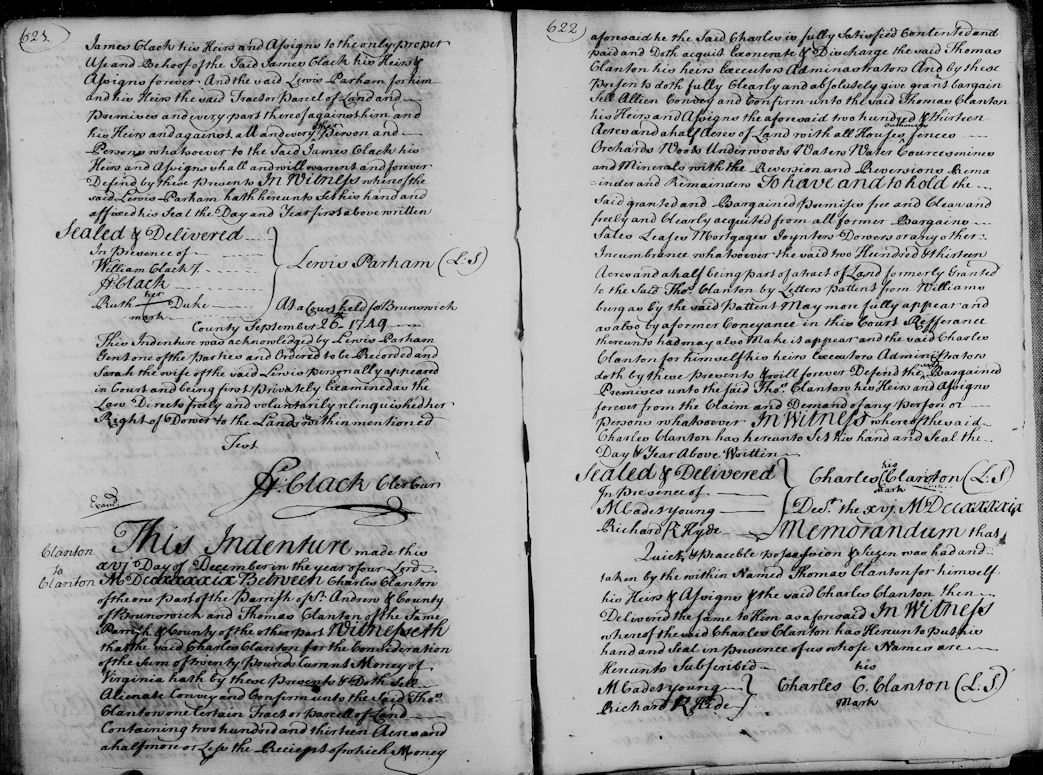 621
James Clack his Heirs and Assigns to the only proper
Use and Behoof of the Said James Clack his Heirs &
Assigns forever And the said Lewis Parham for him
and his Heirs the said Tract or parcel of Land and
Premises and every part thereof against him and
his Heirs and against all and every other Person and
Persons whatsoever to the Said James Clack his
Heirs and Assigns shall and will warrent and forever
Defend by these Presents In Witness whereof the
said Lewis Parham hath hereunto set his hand and
affixed his Seal the Day and Year first above written
Sealed & Delivered
In presence of
William Clack
H Clack
Ruth her mark Duke
Lewis Parham (L.S)
At a Court held for Brunswick
County September 26th 1749
This Indenture was acknowledged by Lewis Parham
Gent one of the parties and Ordered to be Recorded and
Sarah the wife of the said Lewis personally appeared
in Court and being first privately Examined as the
Law Directs freely and voluntarily relinquished her
Right of Dower to the Lands within mentioned
Test
H: Clack Cler Cur
Exam'd
Clanton
to
Clanton
This Indenture made this
xvj Day of December in the year of our Lord
MDccxxxxix Between Charles Clanton
of the one part of the Parrish of St. Andrew & County
of Brunswick and Thomas Clanton of the Same
Parrish & County of the other part Witnesseth
that the said Charles Clanton for the Consideration
of the Sum of twenty Pounds Currant Money of
Virginia hath by these Presents & Doth Sell
Alienate Convey and Confirm unto the Said Thos.
Clanton one Certain Tract or Parcell of Land
Containing two hundred and thirteen Acres and
a half more or Less the Reciept of which Money
622
aforesaid he the Said Charles is fully Satisfied Contented and
paid and Doth acquit Exonerate & Discharge the said Thomas
Clanton his heirs Executors Adminastrators And by these
Presents doth fully Clearly and absolutely give grant bargain
Sell Allien Convey and Confirm unto the said Thomas Clanton
his Heirs and Assigns the aforesaid two hundred & thirteen
Acres and a half Acres of Land with all Houses fences
Orchards Woods Underwoods & Waters Water Cources mines
and Minerals with the Reversion and Reversions Rema
inder and Remainders To have and to hold the
Said granted and Bargained Premises free and Clear and
freely and Clearly acquited from all former Bargains
Sales Leases Mortgages Joynters Dowers or any other
Incumbrance whatsoever the said two Hundred & thirteen
Acres and a half being part of a tract of Land formerly Granted
to the Said Thos. Clanton by Letters Pattent from Williams
burg as by the said Pattent May more fully appear and
as also by a former Coneyance in this Court Refferance
thereunto had may also Make it appear and the said Charles
Clanton for himself his heirs Executors Administrators
doth by these Presents & will forever Defend the Bargained
Premises unto the said Thos. Clanton his Heirs and Assigns
forever from the Claim and Demand of any Person or
persons whatsoever In Witness whereof the said
Charles Clanton has hereunto Set his hand and Seal the
Day & Year Above Written
Sealed & Delivered
In Presence of
M Cadet Young
Richard R Hyde
Charles his mark Clanton (L.S)
Decr. the xvj MDccxxxxix
Memorandum that
Quick & peaceble possession & Sezen was had and
taken by the within Named Thomas Clanton for himself
his Heirs & Assigns of the said Charles Clanton then
Delivered the same to Him as aforesaid In Witness
whereof the said Charles Clanton has Hereunto put his
hand and Seal in presence of us whose Names are
Hereunto Subscribed
M Cadet Young
Richard R Hide
Charles his C. mark Clanton (L.S)